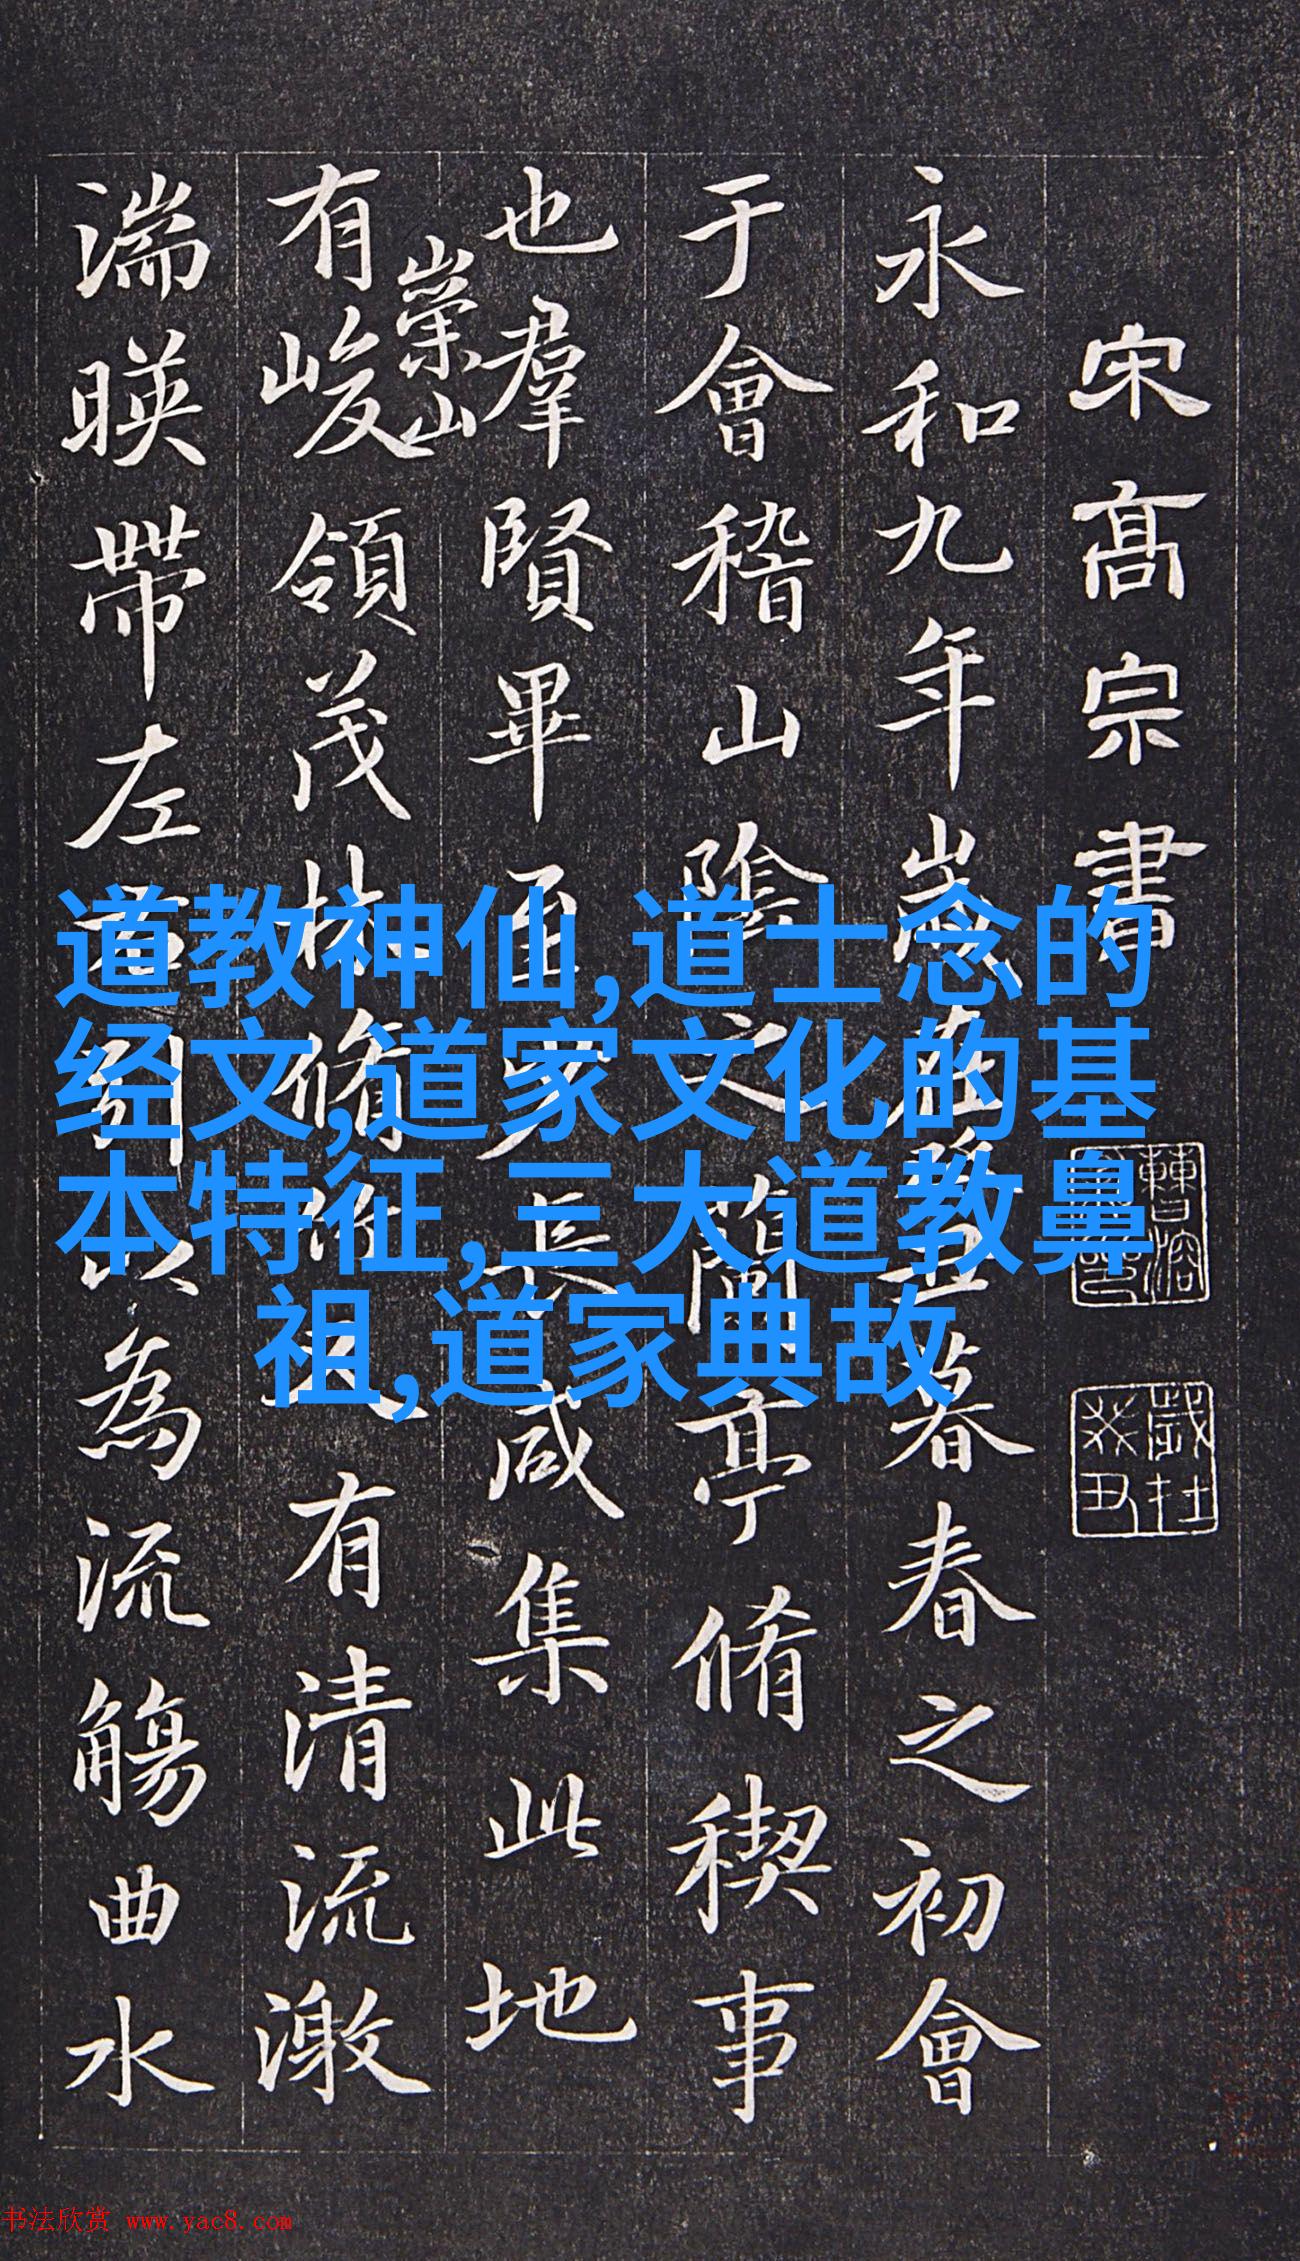 宋髙宗書
永和九年歲在癸丑暮春之初會
于會稽山陰之蘭亭脩稧事
也羣賢畢至少長咸集此地
有峻領茂林脩竹又有清流激
崇山
湍暎帶左右引以為流觴曲水
歲在癸丑
道教神仙,道士念的
经文,道家文化的基
本特征,三大道教鼻
祖,道家典故
书法欣赏 www.yac8.com